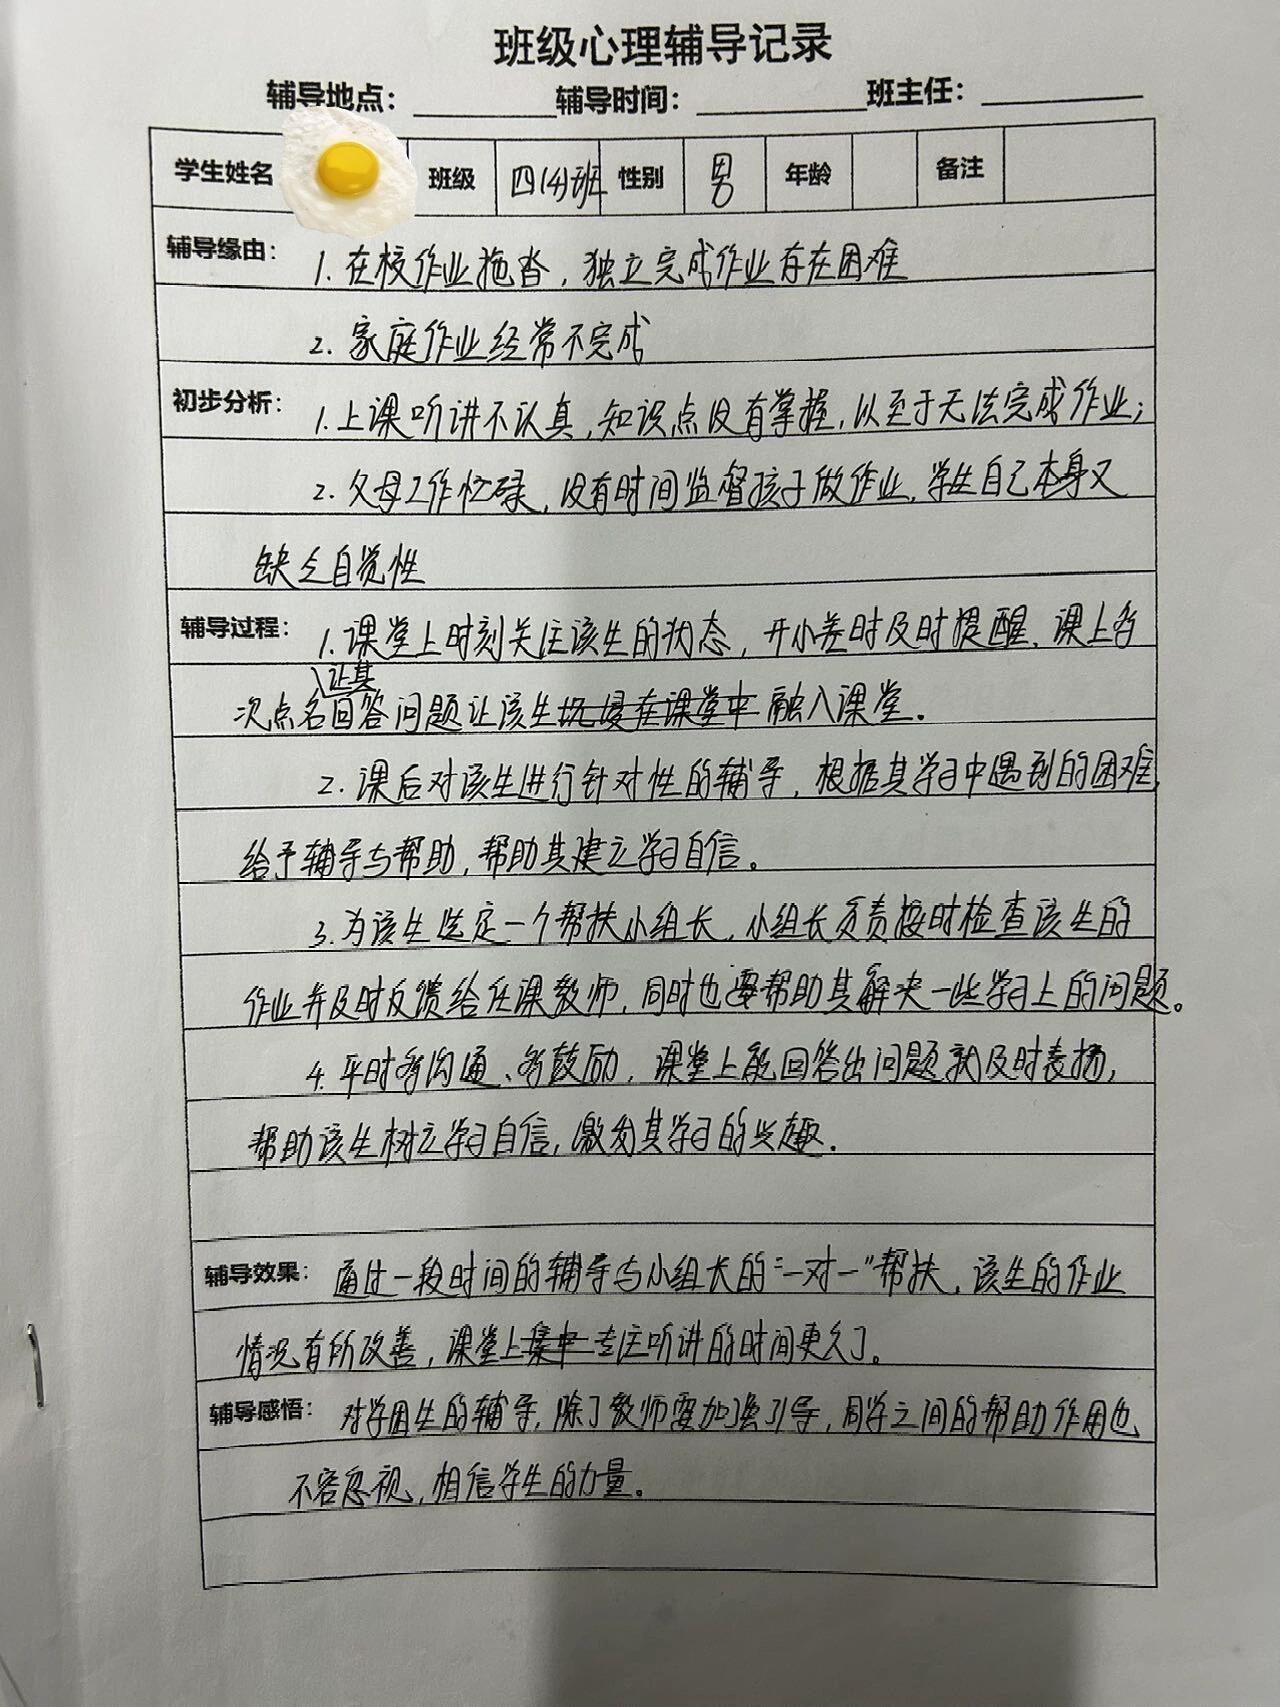 班级心理辅导记录
辅导地点： 辅导时间： 班主任：
学生姓名 班级 四(4)班 性别 男 年龄 备注
辅导缘由： 1. 在校作业拖沓，独立完成作业存在困难
2. 家庭作业经常不完成
初步分析： 1. 上课听讲不认真，知识点没有掌握，以至于无法完成作业；
2. 父母工作忙碌，没有时间监督孩子做作业，学生自己本身又
缺乏自觉性
辅导过程： 1. 课堂上时刻关注该生的状态，开小差时及时提醒，课上多
让其
次点名回答问题让该生沉浸在课堂中融入课堂。
2. 课后对该生进行针对性的辅导，根据其学习中遇到的困难，
给予辅导与帮助，帮助其建立学习自信。
3. 为该生选定一个帮扶小组长，小组长负责按时检查该生的
作业并及时反馈给任课教师，同时也要帮助其解决一些学习上的问题。
4. 平时多沟通、多鼓励，课堂上能回答出问题就及时表扬，
帮助该生树立学习自信，激发其学习的兴趣．
辅导效果： 通过一段时间的辅导与小组长的“一对一”帮扶，该生的作业
情况有所改善，课堂上集中专注听讲的时间更久了。
辅导感悟： 对学困生的辅导，除了教师要加强引导，同学之间的帮助作用也
不容忽视，相信学生的力量。